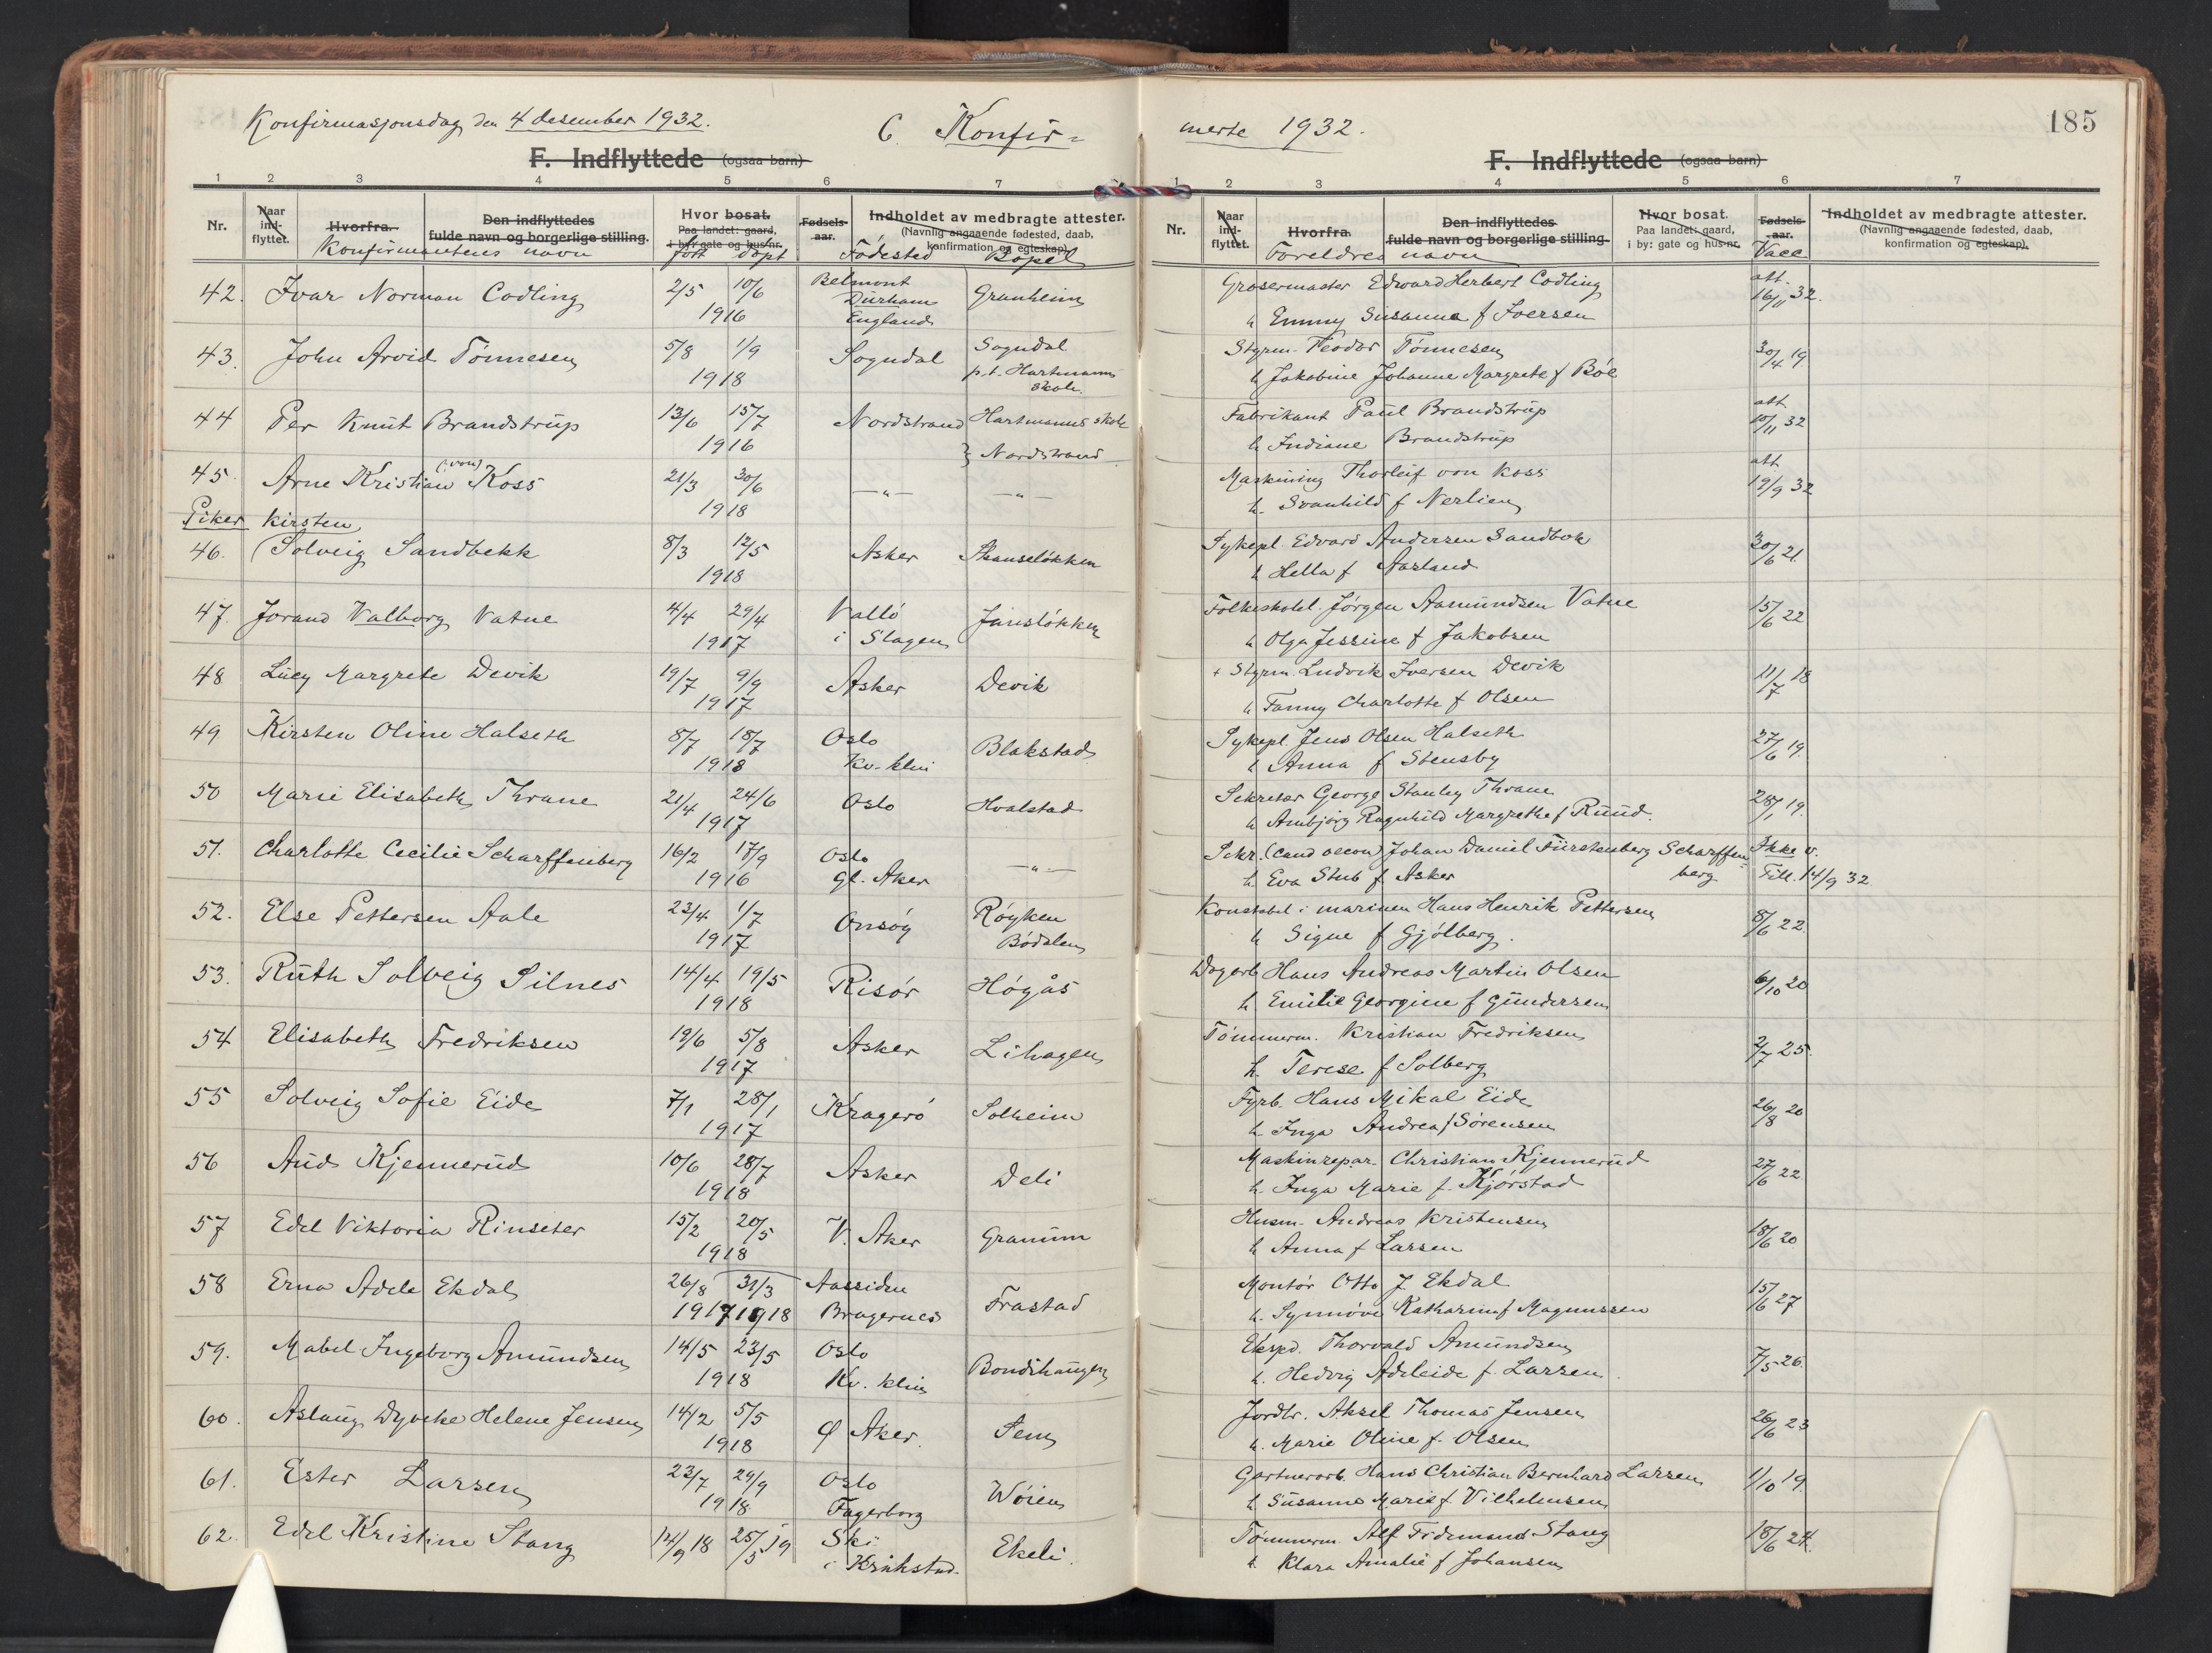 Konfirmasjonsdag den 4 desember 1932.
C. Konfir-
F. Indflyttede (ogsaa barn)
1 2 3 4 5 6 7
Nr.
Naar ind-flyttet.
Hvorfra.
Den indflyttedes fulde navn og borgerlige stilling.
Hvor bosat. Paa landet: gaard, i by: gate og hus nr.
Fødsels-aar.
Indholdet av medbragte attester. (Navnlig angaaende fødested, daab, konfirmation og egteskap).
Konfirmantenes navn født døpt Fødested Bopel
42. Ivar Norman Codling 2/5 10/6 1916 Belmont Durham England Granheim
43. John Arvid Tønnesen 5/8 1/9 1918 Sogndal Sogndal p.t. Hartmanns skole.
44 Per Knut Brandstrup 13/6 15/7 1916 Nordstrand Hartmanns skole } Nordstrand
45. Arne Kristian (von) Koss 21/3 30/6 1918 —"— —"—
Piker Kirsten
46. (Solveig Sandbekk 8/3 12/5 1918 Asker Skanseløkken
47. Jorand Valborg Vatne 4/4 29/4 1917 Valló i Slagen Jansløkken
48 Lucy Margrete Devik 19/7 9/9 1917 Asker Devik
49 Kirsten Oline Halseth 8/7 18/7 1918 Oslo Kv. klin Blakstad
50 Marie Elisabeth Thrane 21/4 24/6 1917 Oslo Hvalstad
51. Charlotte Cecilie Scharffenberg 16/2 17/9 1916 Oslo Gl. Aker —"—
52. Else Pettersen Aale 23/4 1/7 1917 Onsøy Røyken Bødalen
53. Ruth Solveig Silnes 14/4 19/5 1918 Risør Høgås
54 Elisabeth Fredriksen 19/6 5/8 1917 Asker Lihagen
55 Solveig Sofie Eide 7/1 28/1 1917 Kragerø Solheim
56 Aud Kjennerud 10/6 28/7 1918 Asker Deli
57 Edel Viktoria Rinseter 15/2 20/5 1918 V. Aker Granum
58 Erna Adele Ekdal 26/8 1917 31/3 1918 Aassiden Bragernes Frastad
59. Mabel Ingeborg Amundsen 14/5 23/5 1918 Oslo Kv. klin Bondihaugen
60. Aslaug Dyveke Helene Jensen 14/2 5/5 1918 Ø Aker. Sem
61. Ester Larsen 23/7 29/9 1918 Oslo Fagerborg Wøien
62. Edel Kristine Stang 14/9 18 25/5 19 Ski i Kråkstad Ekeli.
merte 1932.
185
F. Indflyttede (ogsaa barn)
1 2 3 4 5 6 7
Nr.
Naar ind-flyttet.
Hvorfra.
Den indflyttedes fulde navn og borgerlige stilling.
Hvor bosat. Paa landet: gaard, i by: gate og hus nr.
Fødsels-aar.
Indholdet av medbragte attester. (Navnlig angaaende fødested, daab, konfirmation og egteskap).
Foreldres navn Vacc
Grosermaster Edward Herbert Codling att. 16/11 32.
h Emmy Susanna f Iversen
Styrm. Teodor Tønnesen 30/4 19.
h Jakobine Johanne Margrete f Bøe
Fabrikant Paul Brandstrup att 10/11 32
h Indiane Brandstrup
Maskining Thorleif von Koss att 19/9 32
h. Svanhild f Nerlien
Sykepl. Edvard Andersen Sandbek 30/6 21.
h Hella f Aarland
Folkeskolel. Jørgen Aamundsen Vatne 15/6 22
h Olga Jessine f Jakobsen
+ Styrm. Ludvik Iversen Devik 11/7 18
h Fanny Charlotte f Olsen
Sykepl. Jens Olsen Halseth 27/6 19.
h Anna f Stensby
Sekretær George Stanley Thrane 28/1 19.
h Ambjørg Ragnhild Margrethe f Ruud.
Sekr. (cand oecon) Johan Daniel Fürstenberg Scharffenberg Ikke v.
h. Eva Stub f Asker Till. 14/9 32
Konstabel i marinen Hans Henrik Pettersen 8/6 22.
h Signe f Gjølberg.
Dagarb Hans Andreas Martin Olsen 6/10 20
h. Emilie Georgine f Gundersen
Tømmerm. Kristian Fredriksen 2/7 25.
h. Terese f Solberg
Fyrb. Hans Mikal Eide 26/8 20
h. Inga Andrea f Sørensen
Maskinrepar. Christian Kjennerud 27/6 22
h. Inga Marie f. Kjørstad
Husm. Andreas Kristensen 18/6 20
h Anna f Larsen
Montør Otto J Ekdal 15/6 27
h. Synnøve Katharina f Magnussen
Eksped. Thorvald Amundsen 7/5 26.
h. Hedvig Adeleide f. Larsen.
Jordbr. Aksel Thomas Jensen 26/6 23
h. Marie Oline f. Olsen
Gartnerarb. Hans Christian Bernhard Larsen 1/10 19.
h. Susanne Marie f. Vilhelmsen
Tømmerm. Alf Ferdinand Stang 18/6 24.
h. Klara Amalie f Johansen